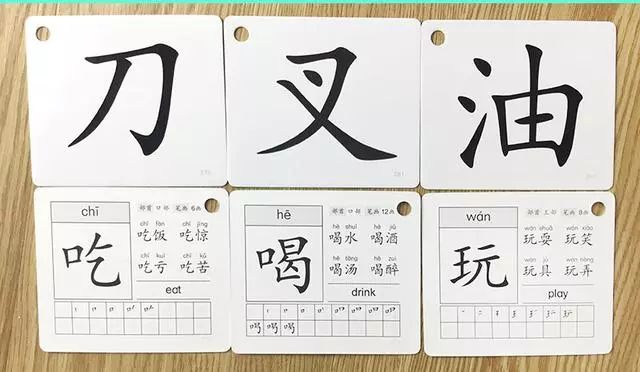 刀
叉
油
chī
部首 口部 笔画 6画
吃
chī fàn chī jīng
吃饭 吃惊
chī kuī chī kǔ
吃亏 吃苦
eat
hē
部首 口部 笔画 12画
喝
hē shuǐ hē jiǔ
喝水 喝酒
hē tāng hē zuì
喝汤 喝醉
drink
wán
部首 王部 笔画 8画
玩
wán shuǎ wán xiào
玩耍 玩笑
wán jù wán nòng
玩具 玩弄
play